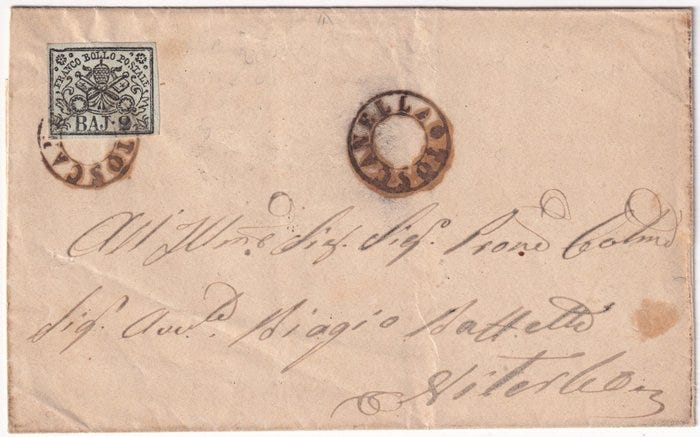 FRANCO BOLLO POSTALE
BAJ. 2
TOSCA
TOSCANELLA
All' Illmo Sig. Sig. Prone Colmo
Sig. Avv. Biagio
Viterbo